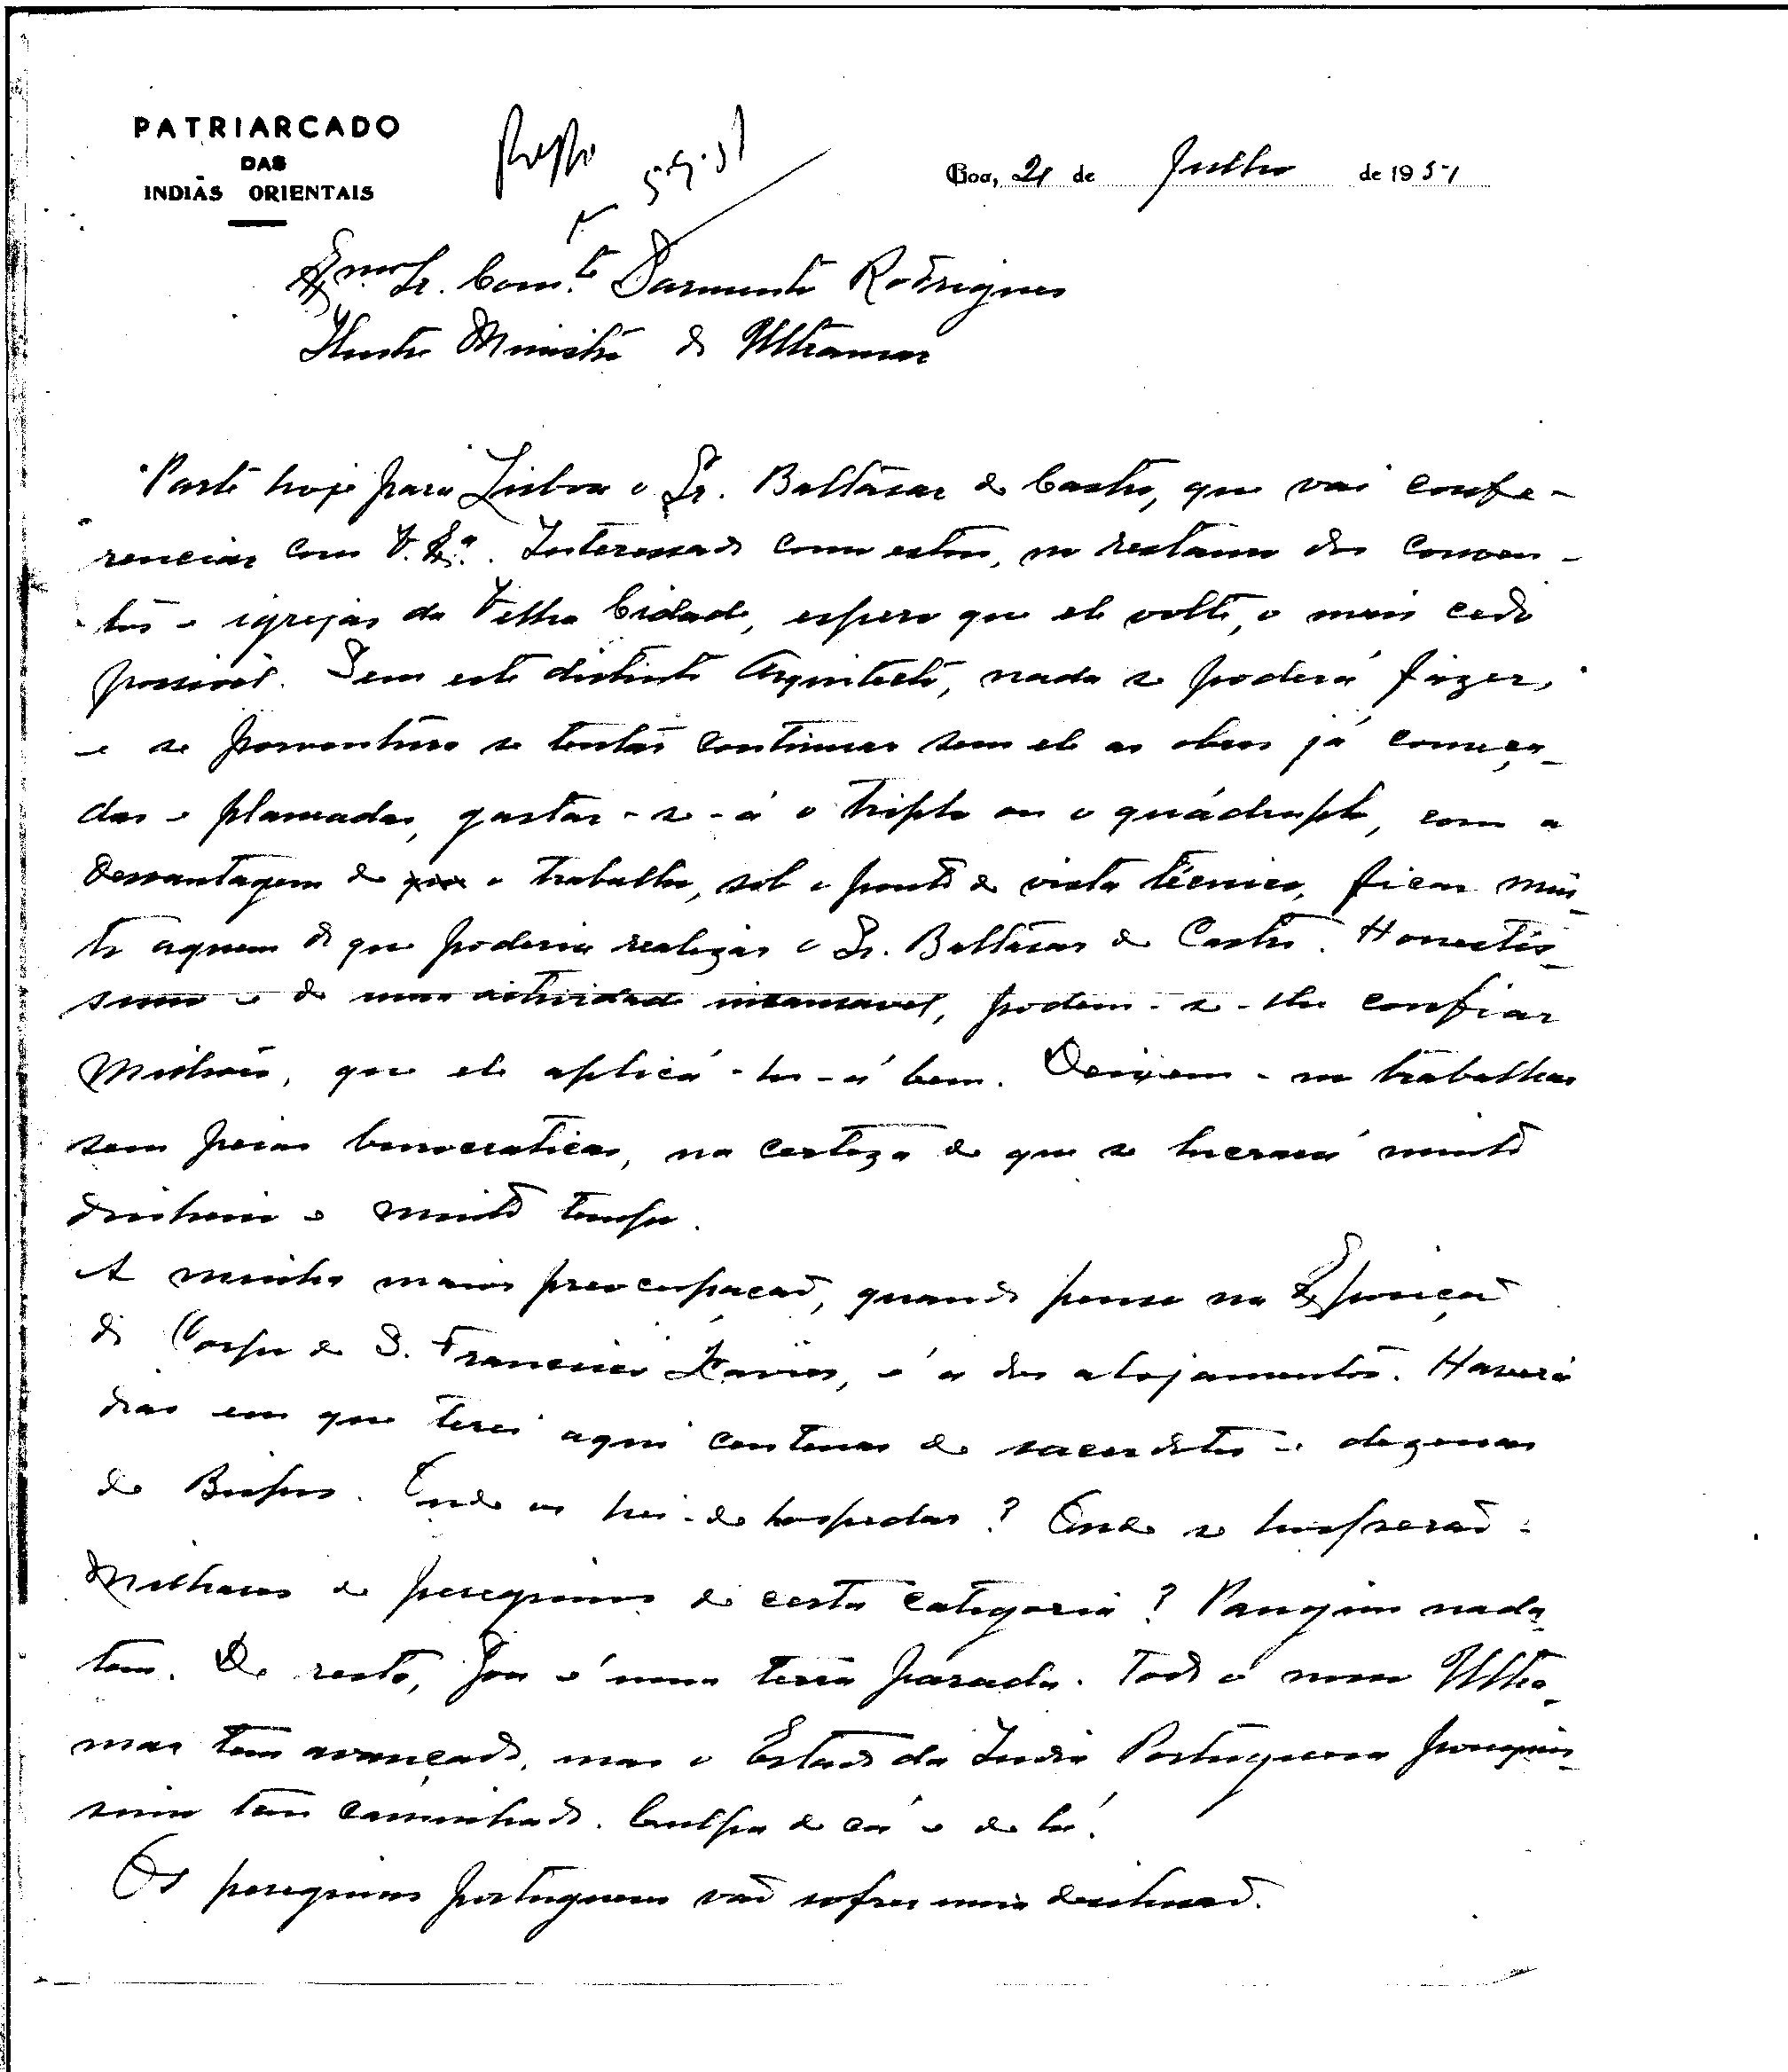 PATRIARCADO
DAS
INDIAS ORIENTAIS
Goa, 21 de Julho de 1951
5.9.51
Exmo Sr. Com.te Sarmento Rodrigues
Ilustre Ministro do Ultramar
Parte hoje para Lisboa o Sr. Baltasar de Castro, que vai confe-
renciar com V. Exª. Interessado como estou, no restauro dos conven-
tos e igrejas da Velha Cidade, espero que ele volte, o mais cedo
possivel. Sem este distinto Arquitecto, nada se poderá fazer,
e se porventura se tentar continuar sem ele as obras já começa-
das e planeadas, gastar-se-á o triplo ou o quádruplo, com a
desvantagem de o trabalho, sob o ponto de vista técnico, ficar mui-
to aquem do que poderia realizar o Sr. Baltasar de Castro. Honestis-
simo e de uma actividade incansavel, podem-se-lhe confiar
milhões, que ele aplicá-los-á bem. Deixem-no trabalhar
sem peias burocraticas, na certeza de que se lucrará muito
dinheiro e muito tempo.
A minha maior preocupação, quando penso na Exposição
do Corpo de S. Francisco Xavier, é a dos alojamentos. Haverá
dias em que terei aqui centenas de sacerdotes e dezenas
de Bispos. Onde os hei-de hospedar? Onde se hospedarão
milhares de peregrinos de certa categoria? Pangim nada
tem. De resto, Goa é uma terra parada. Todo o nosso Ultra-
mar tem avançado, mas o Estado da India Portuguesa pouquis-
simo tem caminhado. Culpa de cá e de lá.
Os peregrinos portugueses vão sofrer uma desilusão.